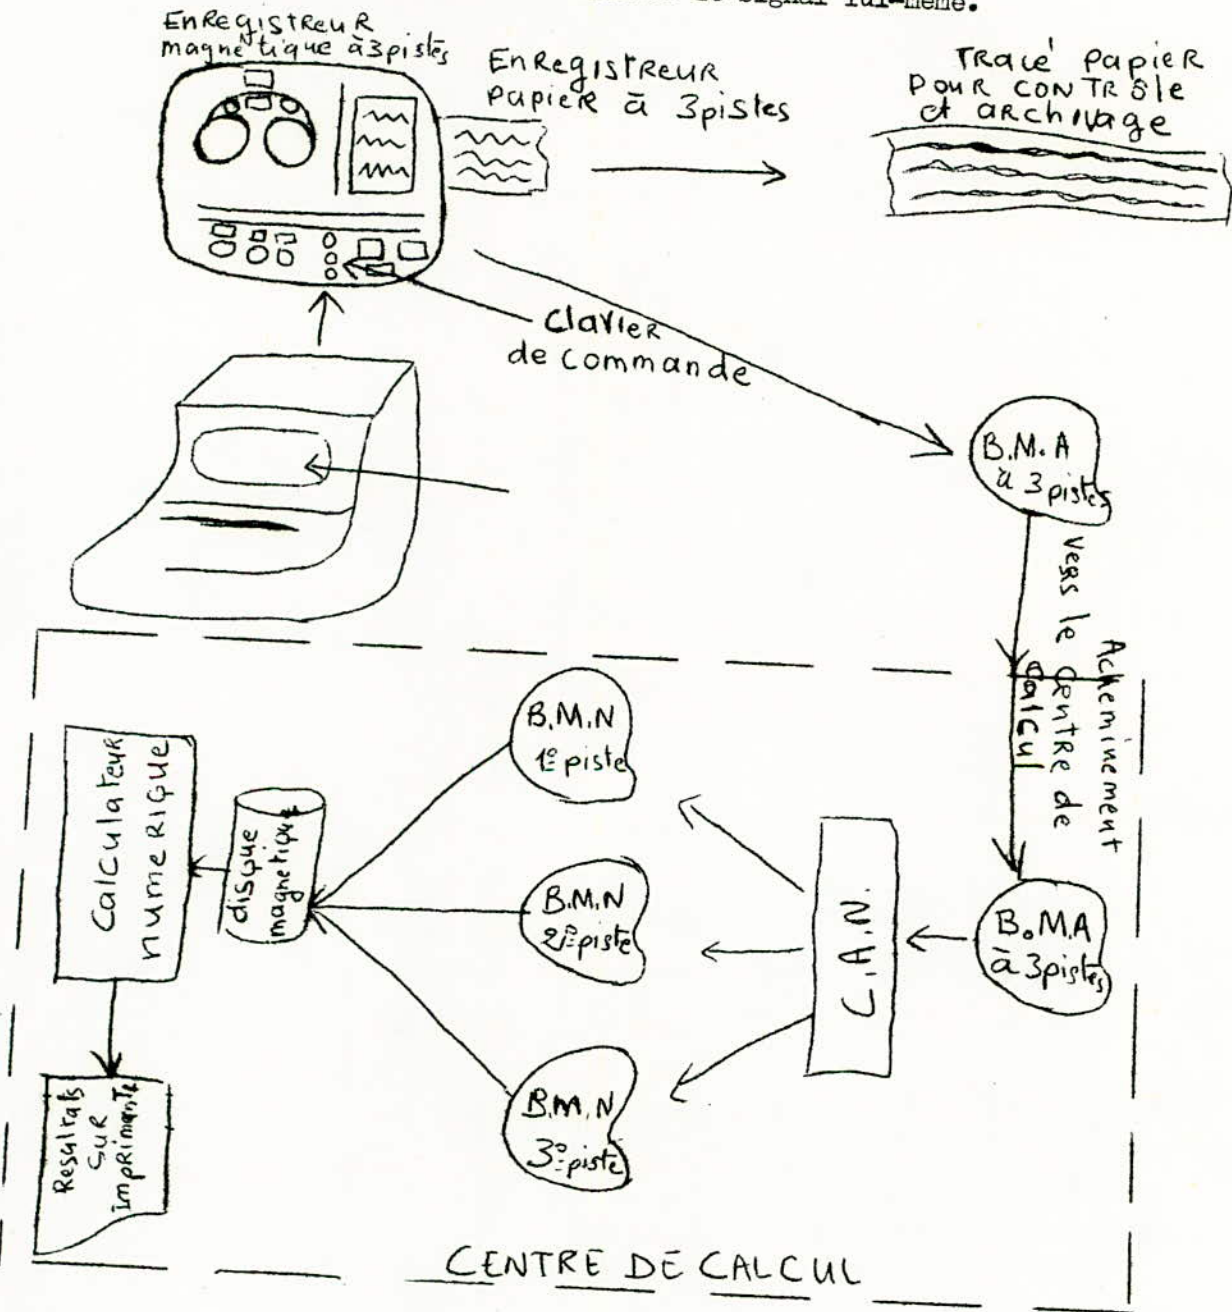 signal lui-même.
EnRegistReuR
magnétique à 3 pistes
EnRegistReuR
PapieR à 3 pistes
TRacé PapieR
PouR CONTRôle
et aRchivage
ClavieR
de Commande
B.M.A
à 3 pistes
Acheminement
veRs le Centre de
Calcul
B.M.N
1º piste
B.M.N
2º piste
B.M.N
3º piste
C.A.N.
B.M.A
à 3 pistes
disque
magnetique
CalculateuR
numeRique
Resultats
SuR
impRimante
CENTRE DE CALCUL